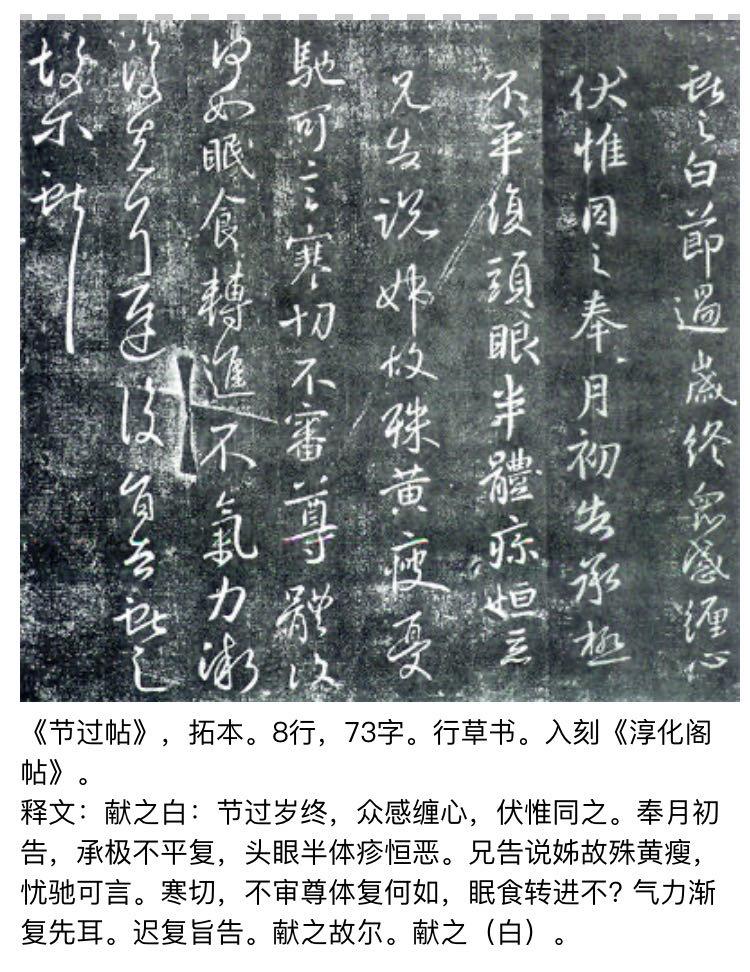 献之白節過歲終眾感纏心
伏惟同之奉月初告承極
不平復頭眼半體疹恒惡
兄告說姊故殊黃瘦憂
馳可言寒切不審尊體復
何如眠食轉進不氣力漸
復先耳遲復旨告献之
故尔献
《节过帖》，拓本。8行，73字。行草书。入刻《淳化阁
帖》。
释文：献之白：节过岁终，众感缠心，伏惟同之。奉月初
告，承极不平复，头眼半体疹恒恶。兄告说姊故殊黄瘦，
忧驰可言。寒切，不审尊体复何如，眠食转进不？气力渐
复先耳。迟复旨告。献之故尔。献之（白）。